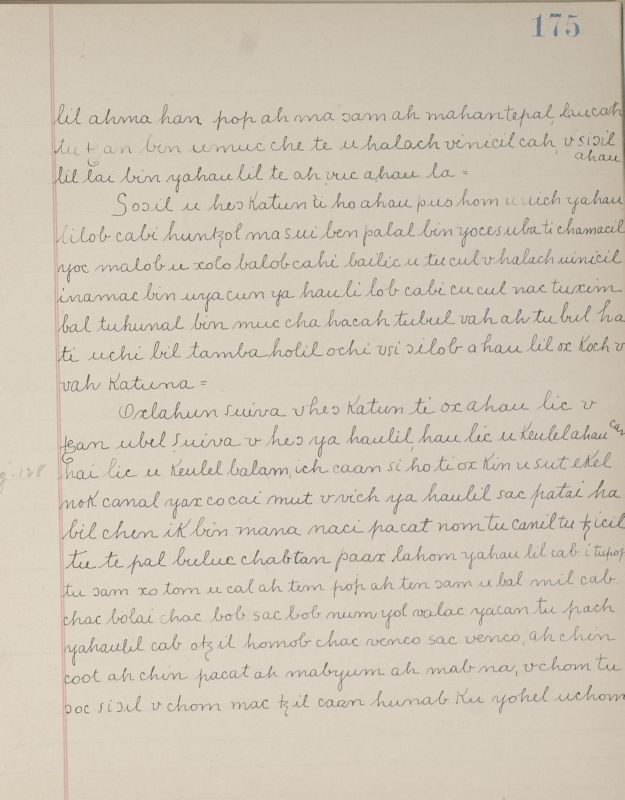 175
lil ahma han pop ah ma ɔam ah mahantepal, bucah
tu ꜩan bin u muc che te u halach vinicil cah, v siɔil
ahau
lil lai bin yahau lil te ah vuc ahau la =
Soɔil u heɔ Katun ti ho ahau pus hom u uich yahau
lilob cabi huntꜩol ma sui ben palal bin yoces uba ti chamacil
yoc malob u xolo balob cahi bailic u tucul v halach uinicil
inamac bin uyacun ya hauli lob cabi cu cul nac tuxim
bal tuhunal bin muc cha hacah tubul vah ah tu bul ha
ti uchi bil tamba holil ochi vsi ɔilob ahau lil ox Koch v
vah Katuna =
Oxlahun Suiva v heɔ Katun ti ox ahau lic v
ꜩan ubel Suiva v heɔ ya haulil, hau lic u Keulel ahau can
128
hai lic u Keulel balam, ich caan si ho ti ox Kin u sut eKel
noK canal yax cocai mut v vich ya haulil sac patai ha
bil chen iK bin mana naci pacat nom tu canil tu ꜩicil
tu te pal buluc chabtan paax lahom yahau lil cab i tupop
tu ɔam xo tom u cal ah tem pop ah ten ɔam u bal mil cab
chac bolai chac bob sac bob num yol valac yacan tu pach
yahaulil cab otꜩil homob chac venco sac venco, ah chin
coot ah chin pacat ah mabyum ah mab na, v chom tu
ɔoc siɔil v chom mac ꜩil caan hunab Ku yohel uchom